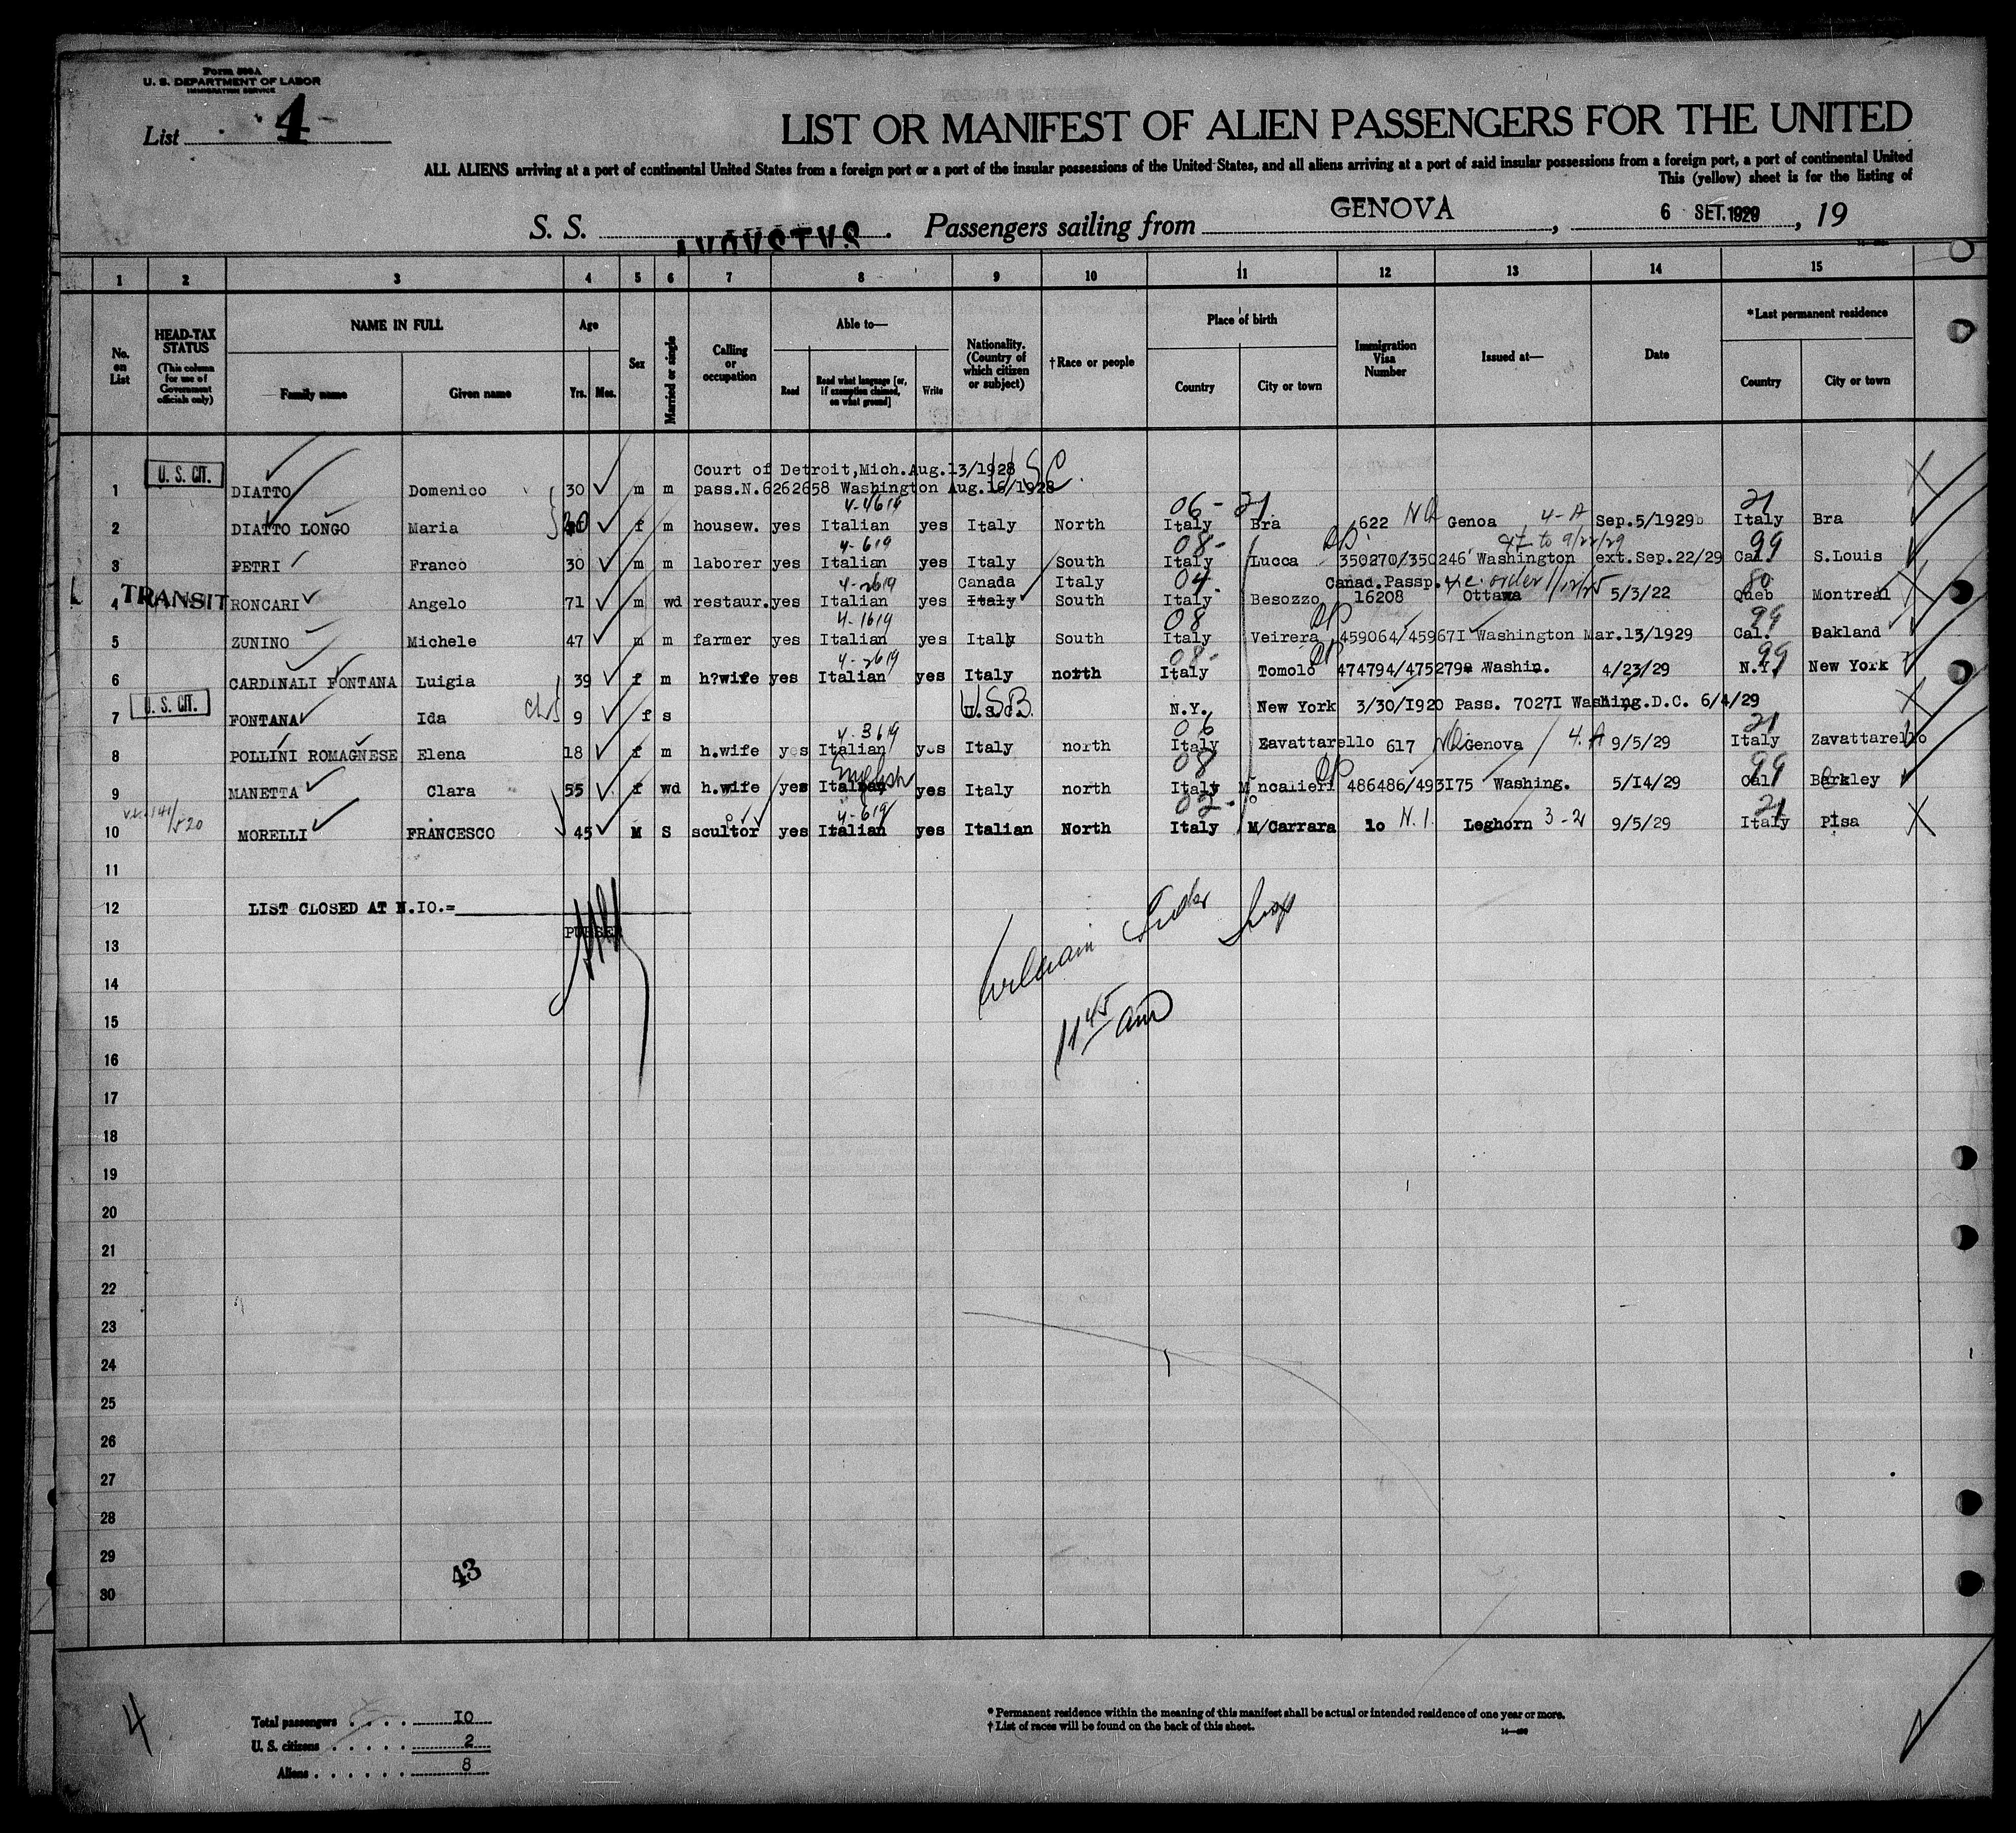 Form 500A
U. S. DEPARTMENT OF LABOR
IMMIGRATION SERVICE
List 4
LIST OR MANIFEST OF ALIEN PASSENGERS FOR THE UNITED
ALL ALIENS arriving at a port of continental United States from a foreign port or a port of the insular possessions of the United States, and all aliens arriving at a port of said insular possessions from a foreign port, a port of continental United
This (yellow) sheet is for the listing of
S. S. AVGVSTVS. Passengers sailing from GENOVA, 6 SET.1929, 19
1 2 3 4 5 6 7 8 9 10 11 12 13 14 15
No. on List
HEAD-TAX STATUS (This column for use of Government officials only)
NAME IN FULL Family name Given name
Age Yrs. Mos.
Sex
Married or single
Calling or occupation
Able to— Read Read what language [or, if exemption claimed, on what ground] Write
Nationality. (Country of which citizen or subject)
†Race or people
Place of birth Country City or town
Immigration Visa Number
Issued at—
Date
*Last permanent residence Country City or town
U. S. CIT. Court of Detroit,Mich.Aug.13/1928 USC.
1 DIATTO Domenico 30 m m pass.N.6262658 Washington Aug.16/1928
4-4619 06- 21 21
2 DIATTO LONGO Maria 20 f m housew. yes Italian yes Italy North Italy Bra 622 NQ Genoa 4-A Sep.5/1929 Italy Bra
4-619 08- RP ext to 9/22/29 99
3 PETRI Franco 30 m m laborer yes Italian yes Italy South Italy Lucca 350270/350246 Washington ext.Sep.22/29 Cal. S.Louis
4-2619 Canada Italy 04 Canad.Passp. 4 e. order 1/12/25 80
TRANSIT
4 RONCARI Angelo 71 m wd restaur. yes Italian yes Italy South Italy Besozzo 16208 Ottawa 5/3/22 Queb Montreal
4-1619 08 RP 99
5 ZUNINO Michele 47 m m farmer yes Italian yes Italy South Italy Veirera 459064/45967I Washington Mar.13/1929 Cal. Oakland
4-2619 08- RP 99
6 CARDINALI FONTANA Luigia 39 f m h?wife yes Italian yes Italy north Italy Tomolo 474794/475279 Washin. 4/23/29 N.Y. New York
U. S. CIT.
7 FONTANA Ida 9 f s U.S.B. N.Y. New York 3/30/I920 Pass. 7027I Washing.D.C. 6/4/29
4-3619 06 21
8 POLLINI ROMAGNESE Elena 18 f m h.wife yes Italian yes Italy north Italy Zavattarello 617 NQ Genova 4-A 9/5/29 Italy Zavattarello
English 08 RP 99
9 MANETTA Clara 55 f wd h.wife yes Italian yes Italy north Italy Moncalieri 486486/493I75 Washing. 5/14/29 Cal Berkley
4-619 02- 21
10 MORELLI FRANCESCO 45 M S scultor yes Italian yes Italian North Italy M/Carrara 1o N.I. Leghorn 3-21 9/5/29 Italy Pisa
11
12 LIST CLOSED AT N.IO.=
PURSER
13
14
15
11 45 am
16
17
18
19
20
21
22
23
24
25
26
27
28
29
43
30
4
Total passengers . . . . IO
U. S. citizens . . . . . 2
Aliens . . . . . . 8
* Permanent residence within the meaning of this manifest shall be actual or intended residence of one year or more.
† List of races will be found on the back of this sheet.